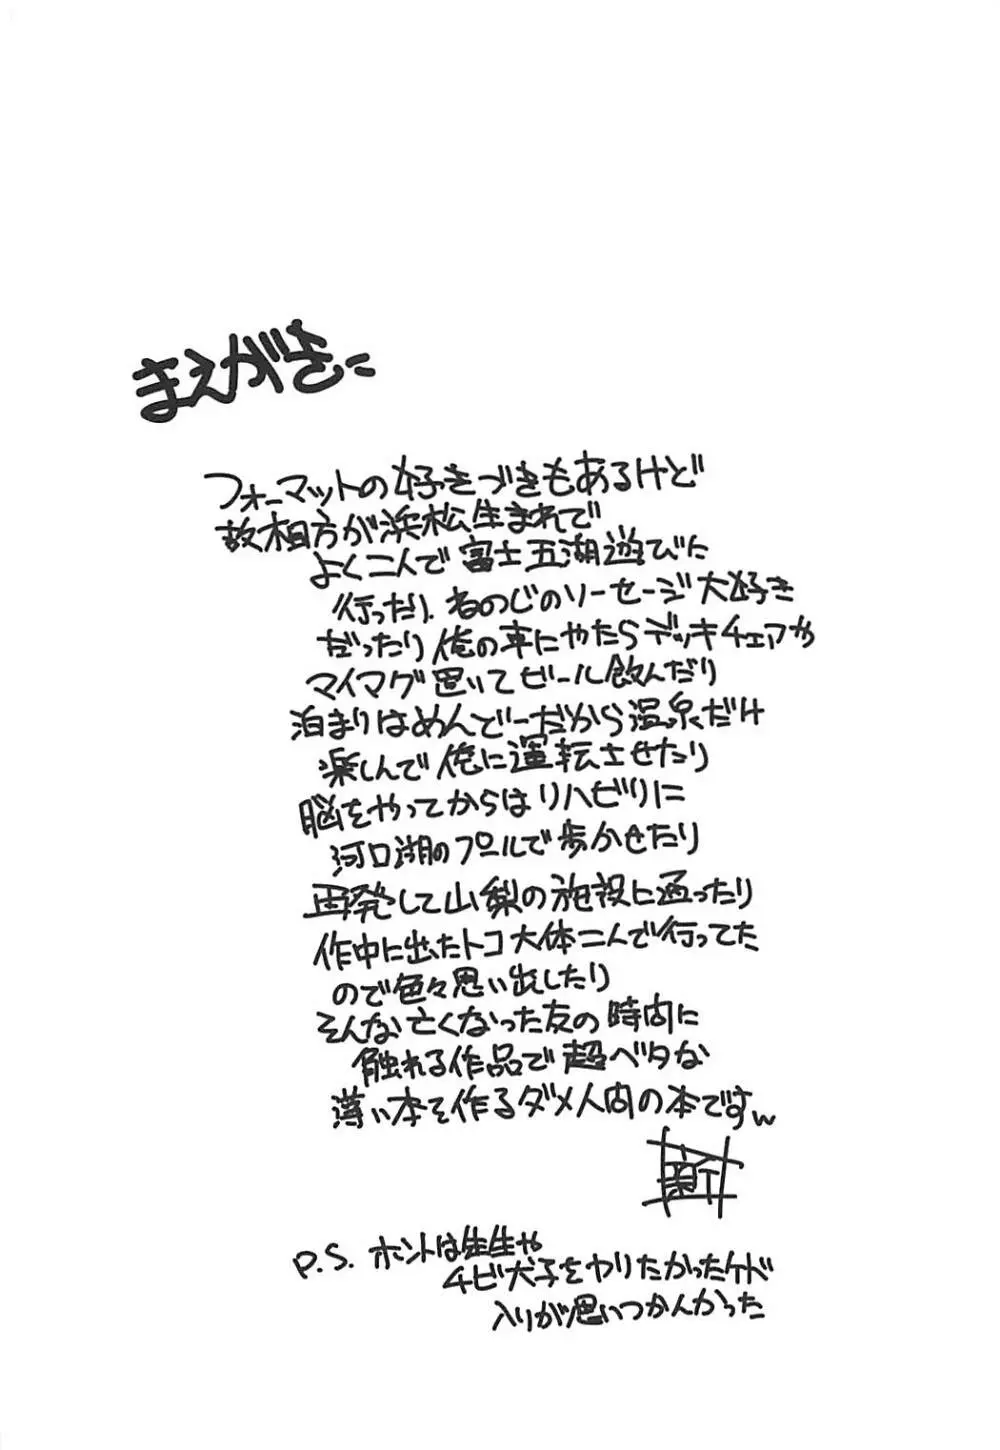 まえがきに
フォーマットの好きづきもあるけど
故相方が浜松生まれで
よく二人で富士五湖遊びに
行ったり、そのじのソーセージ大好き
だったり俺の車にやたらデッキチェアや
マイマグ置いてビール飲んだり
泊まりはめんでーだから温泉だけ
楽しんで俺に運転させたり
脳をやってからはリハビリに
河口湖のプールで歩かせたり
再発して山梨の施設に通ったり
作中に出たトコ大体二人で行ってた
ので色々思い出したり
そんな亡くなった友の時間に
触れる作品で超ベタな
薄い本を作るダメ人間の本ですw
P.S. ホントは先生や
チビ犬子をヤりたかったケド
入りが思いつかんかった